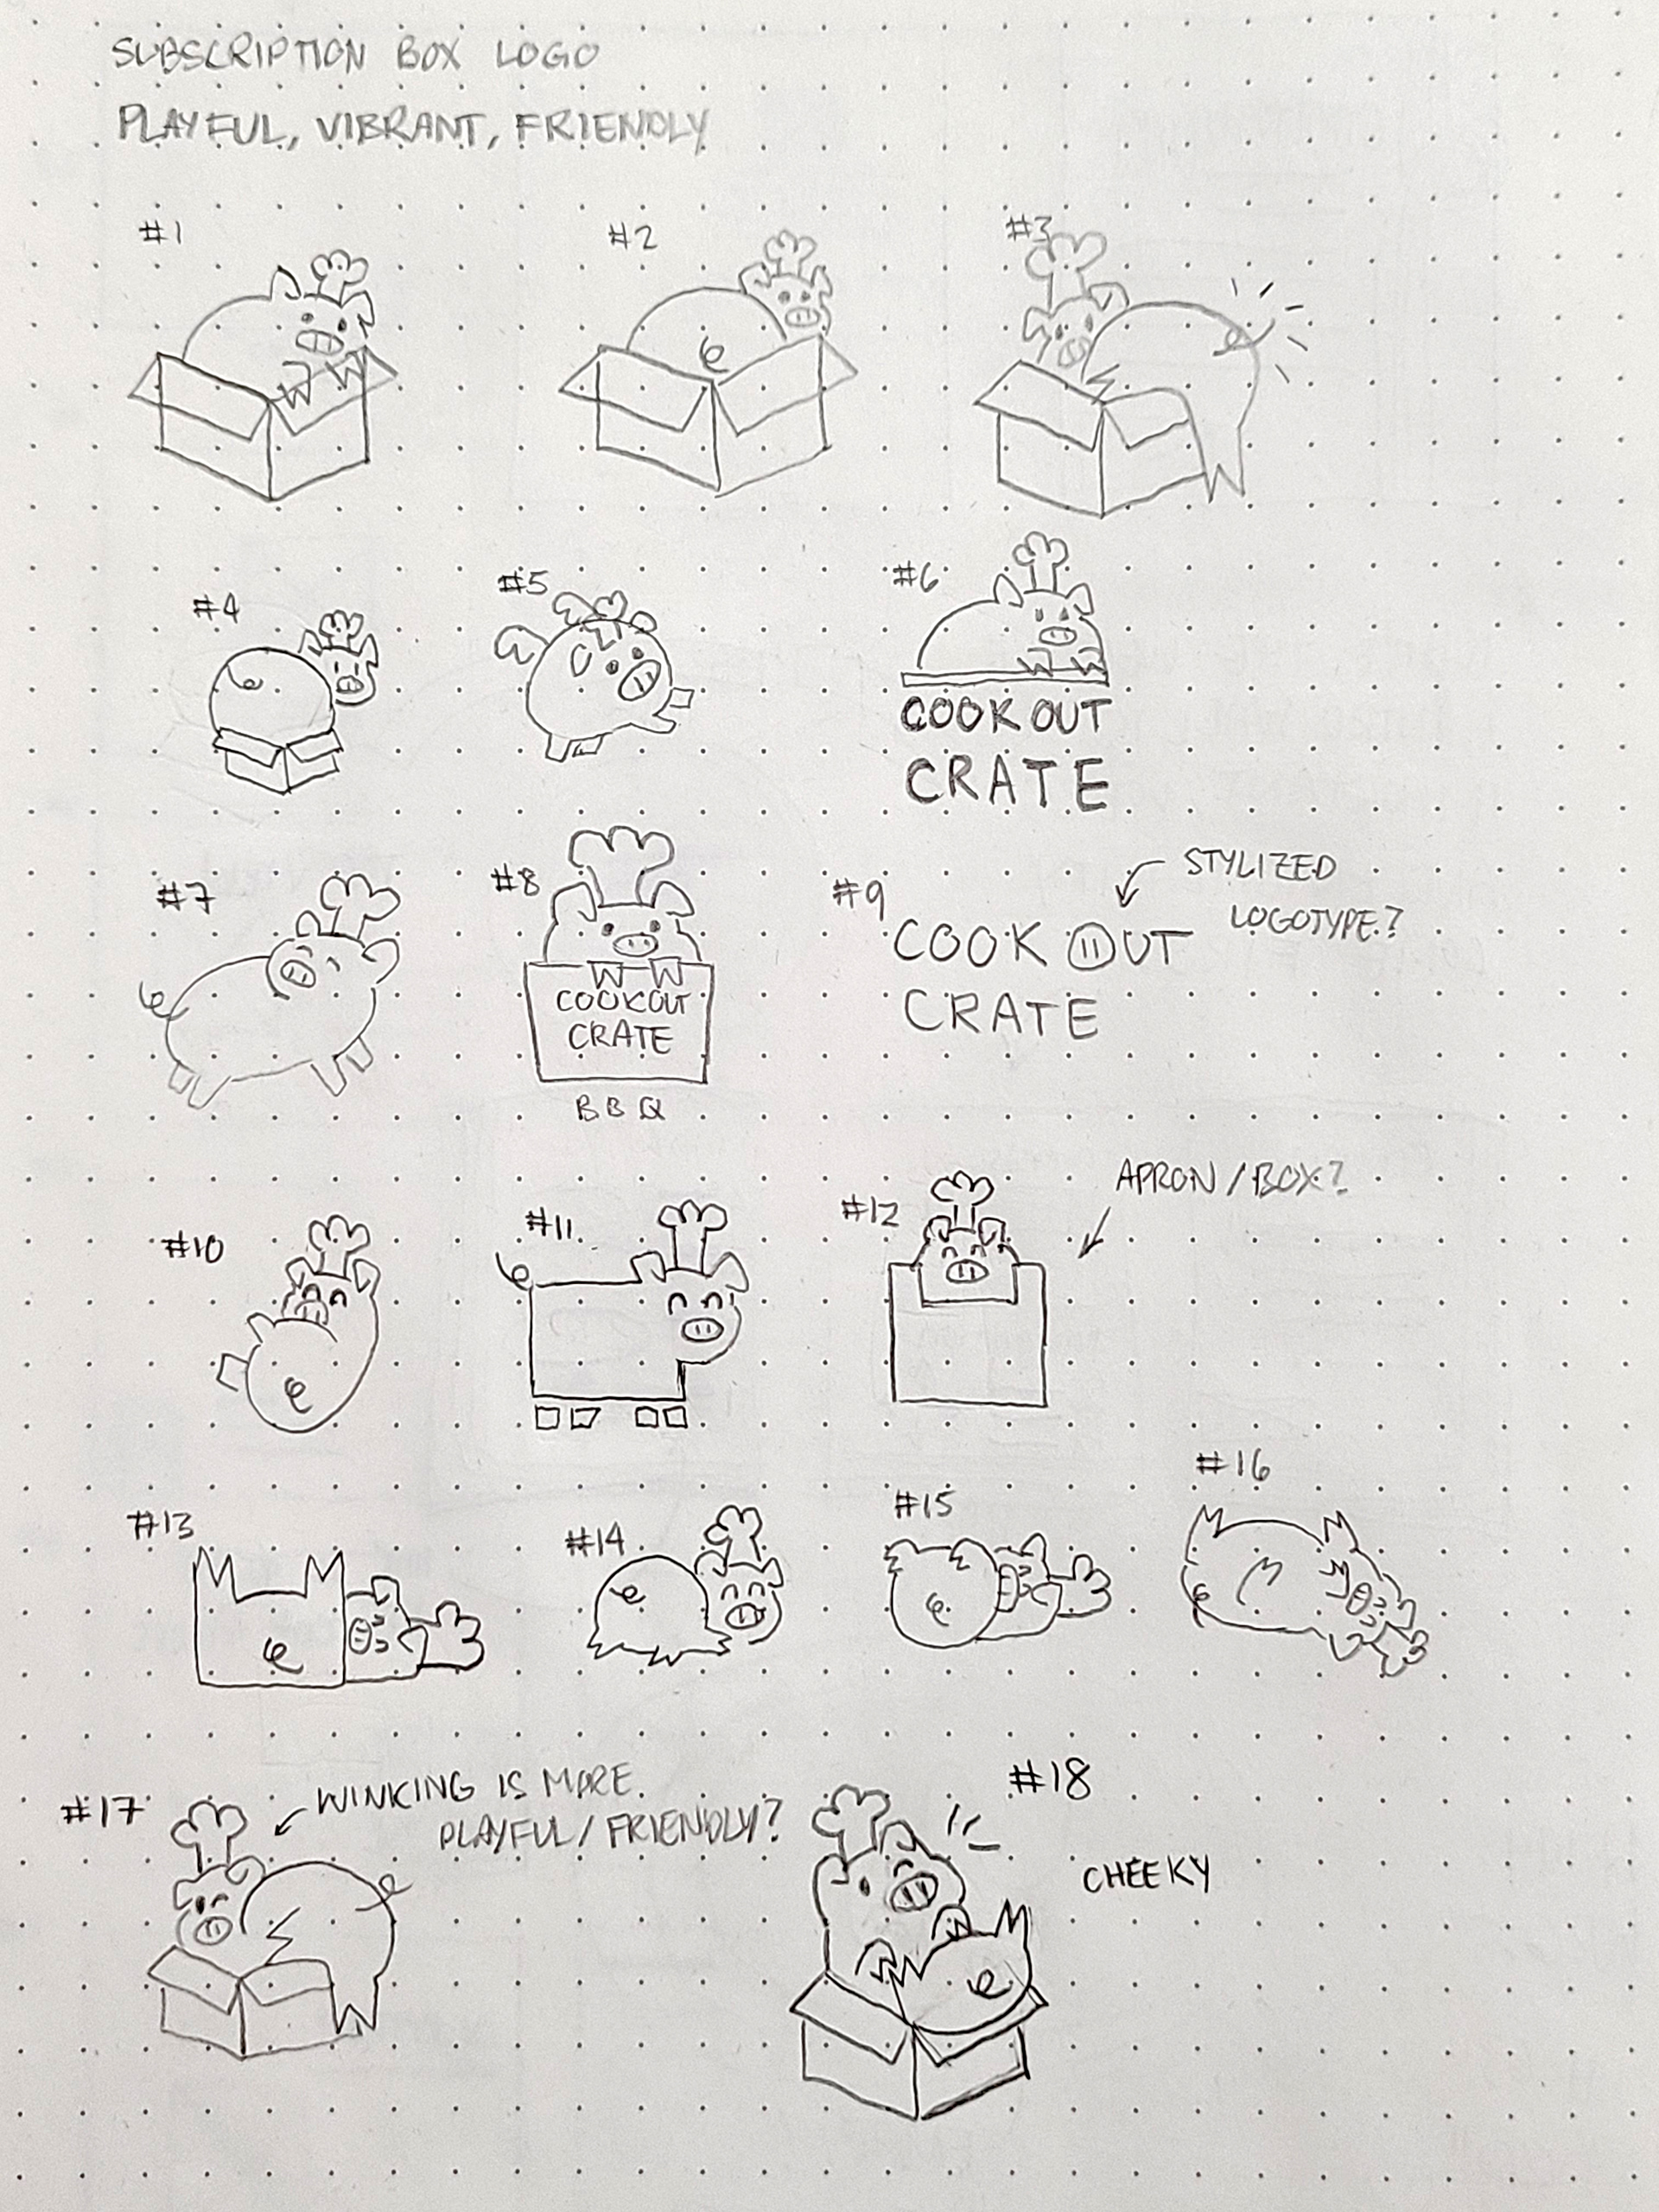 SUBSCRIPTION BOX LOGO
PLAYFUL, VIBRANT, FRIENDLY
#1
#2
#3
#4
#5
#6
COOKOUT
CRATE
#7
#8
COOKOUT
CRATE
BBQ
#9
COOKOUT
CRATE
STYLIZED
LOGOTYPE?
#10
#11
#12
APRON/BOX?
#13
#14
#15
#16
#17
WINKING IS MORE
PLAYFUL/FRIENDLY?
#18
CHEEKY